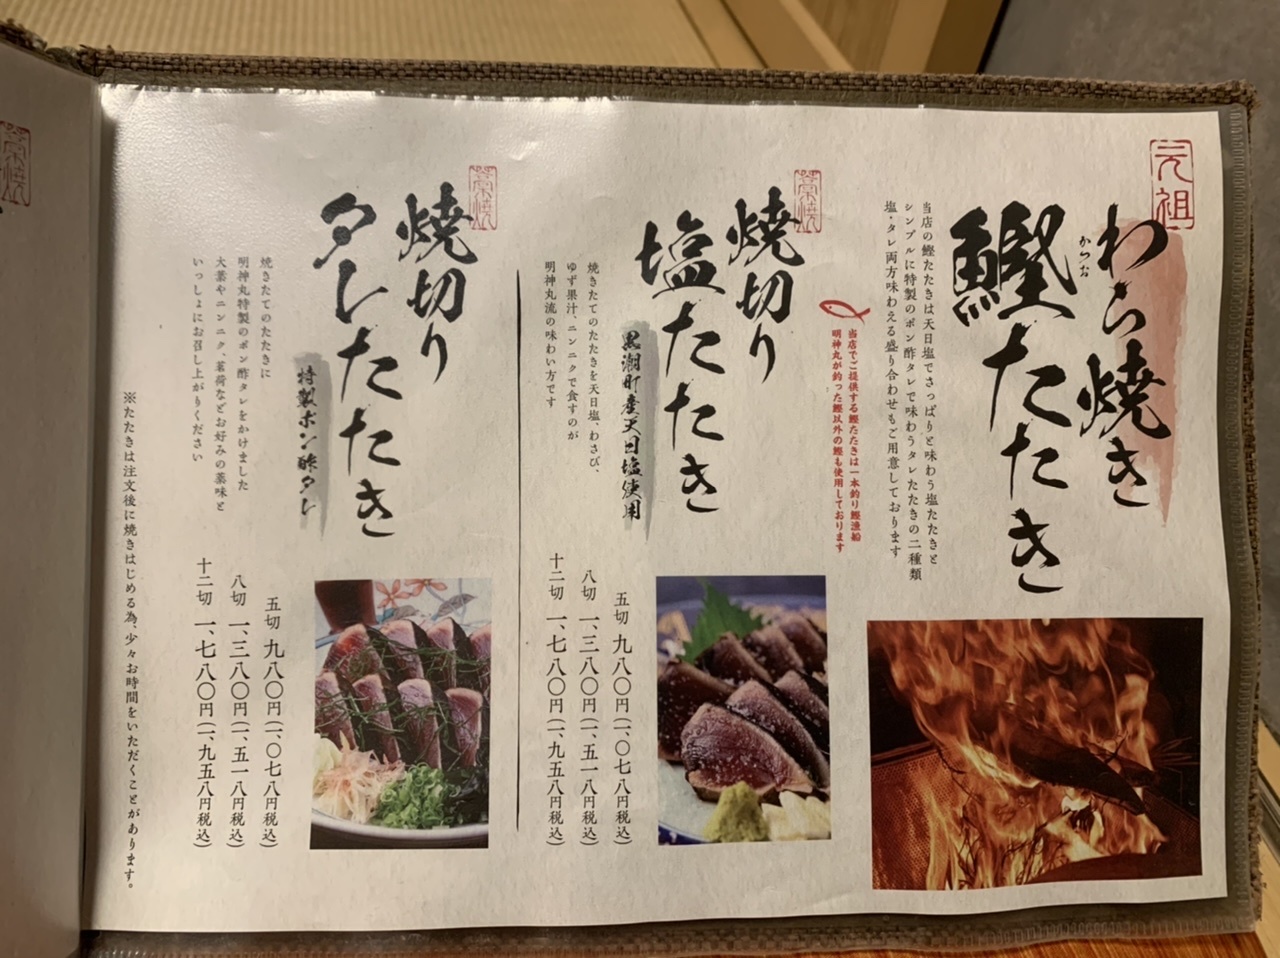 元祖
わら焼き
かつお
鰹たたき
当店の鰹たたきは天日塩でさっぱりと味わう塩たたきと
シンプルに特製のポン酢タレで味わうタレたたきの二種類
塩・タレ両方味わえる盛り合わせもご用意しております
当店でご提供する鰹たたきは一本釣り鰹漁船
明神丸が釣った鰹以外の鰹も使用しております
藁焼
焼切り
塩たたき
黒潮町産天日塩使用
焼きたてのたたきを天日塩、わさび、
ゆず果汁、ニンニクで食すのが
明神丸流の味わい方です
五切 九八〇円(一、〇七八円税込)
八切 一、三八〇円(一、五一八円税込)
十二切 一、七八〇円(一、九五八円税込)
藁焼
焼切り
タレたたき
特製ポン酢タレ
焼きたてのたたきに
明神丸特製のポン酢タレをかけました
大葉やニンニク、茗荷などお好みの薬味と
いっしょにお召し上がりください
五切 九八〇円(一、〇七八円税込)
八切 一、三八〇円(一、五一八円税込)
十二切 一、七八〇円(一、九五八円税込)
※たたきは注文後に焼きはじめる為、少々お時間をいただくことがあります。
藁焼